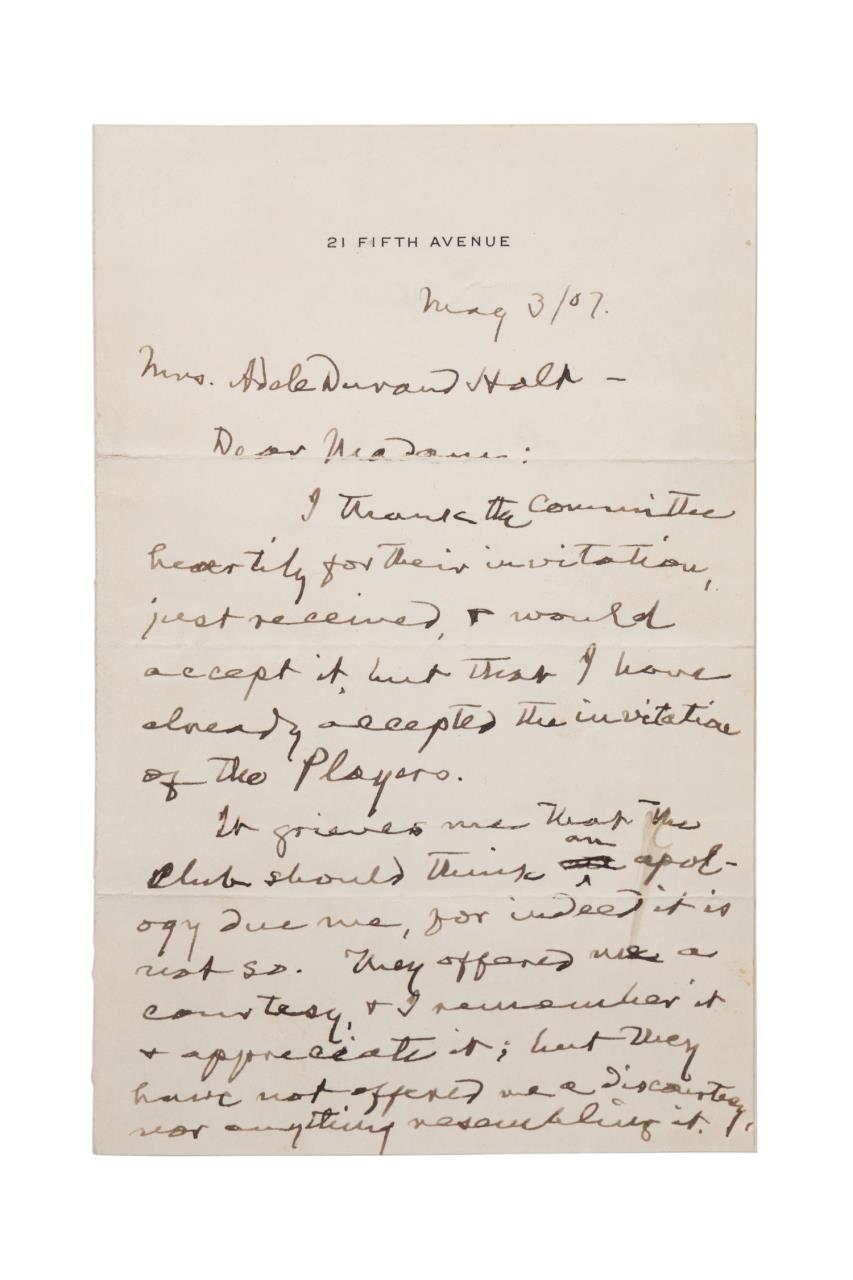 21 FIFTH AVENUE
May 3/07.
Mrs. Adele Durand Holt –
Dear Madam:
I thank the Committee
heartily for their invitation,
just received, & would
accept it, but that I have
already accepted the invitation
of the Players.
It grieves me that the
Club should think an apol-
ogy due me, for indeed it is
not so. They offered me a
courtesy, & I remember it
& appreciate it; but they
have not offered me a discourtesy,
nor anything resembling it.